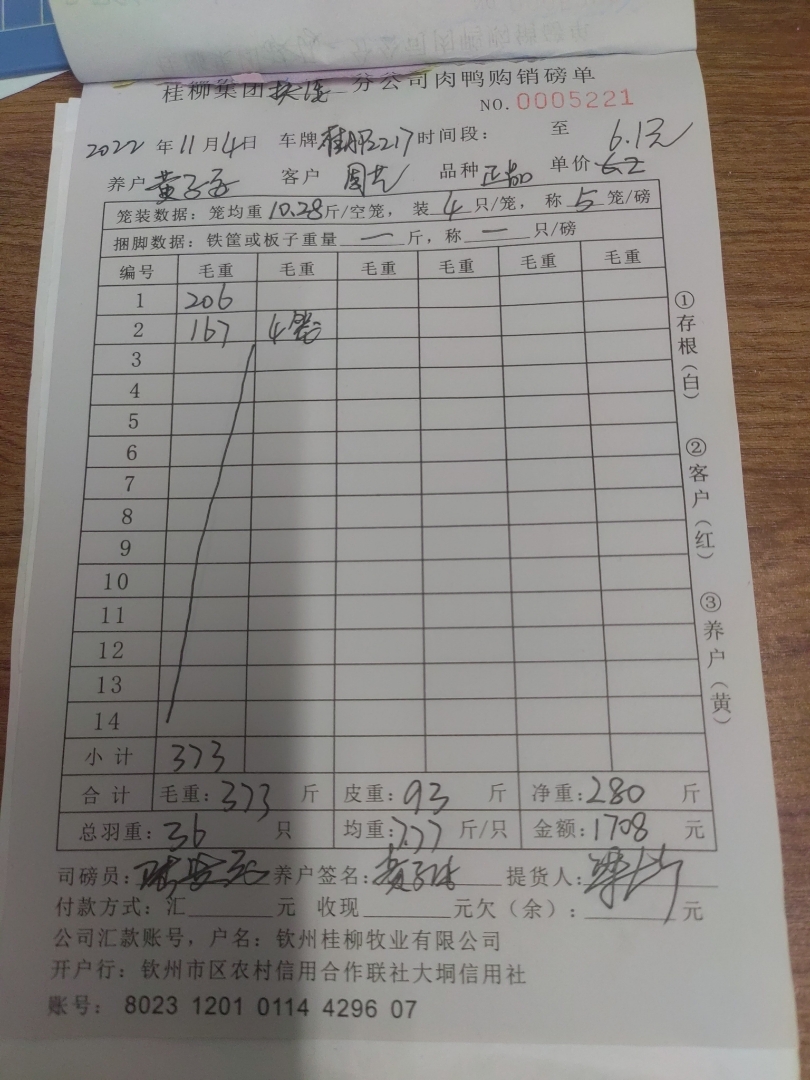 桂柳集团 分公司肉鸭购销磅单
NO.0005221
2022年11月4日 车牌 桂 2217 时间段： 至 6.1元
养户 黄子 客户 周 品种 正品 单价
笼装数据：笼均重 10.28 斤/空笼，装 4 只/笼，称 5 笼/磅
捆脚数据：铁筐或板子重量 一 斤，称 一 只/磅
编号 毛重 毛重 毛重 毛重 毛重 毛重
1 206
2 167 4笼
3
4
5
6
7
8
9
10
11
12
13
14
小计 373
合计 毛重：373 斤 皮重：93 斤 净重：280 斤
总羽重：36 只 均重：7.77 斤/只 金额：1708 元
司磅员： 养户签名： 提货人：
付款方式：汇 元 收现 元欠（余）： 元
公司汇款账号，户名：钦州桂柳牧业有限公司
开户行：钦州市区农村信用合作联社大垌信用社
账号： 8023 1201 0114 4296 07
①存根（白）
②客户（红）
③养户（黄）